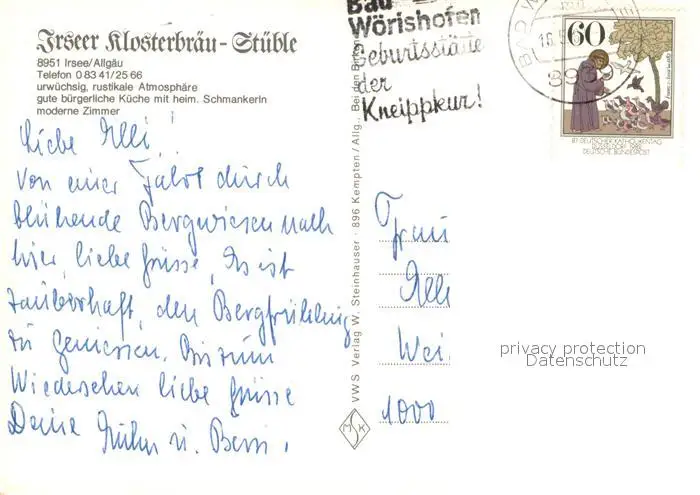 Irseer Klosterbräu-Stüble
8951 Irsee/Allgäu
Telefon 0 83 41/25 66
urwüchsig, rustikale Atmosphäre
gute bürgerliche Küche mit heim. Schmankerln
moderne Zimmer
Liebe Elli,
Von einer Fahrt durch
blühende Bergwiesen nach
hier, liebe Grüsse, Es ist
zauberhaft, den Bergfrühling
zu geniessen. Bis zum
Wiedersehen liebe Grüsse
Deine
u.
VWS Verlag W. Steinhauser · 896 Kempten/Allg., Bei den Birken
MSK
Bad
Wörishofen
Geburtsstätte
der
Kneippkur!
BAD W
8939
60
87. DEUTSCHER KATHOLIKENTAG
DÜSSELDORF 1982
DEUTSCHE BUNDESPOST
Frau
Elli
Wei
1000
privacy protection
Datenschutz